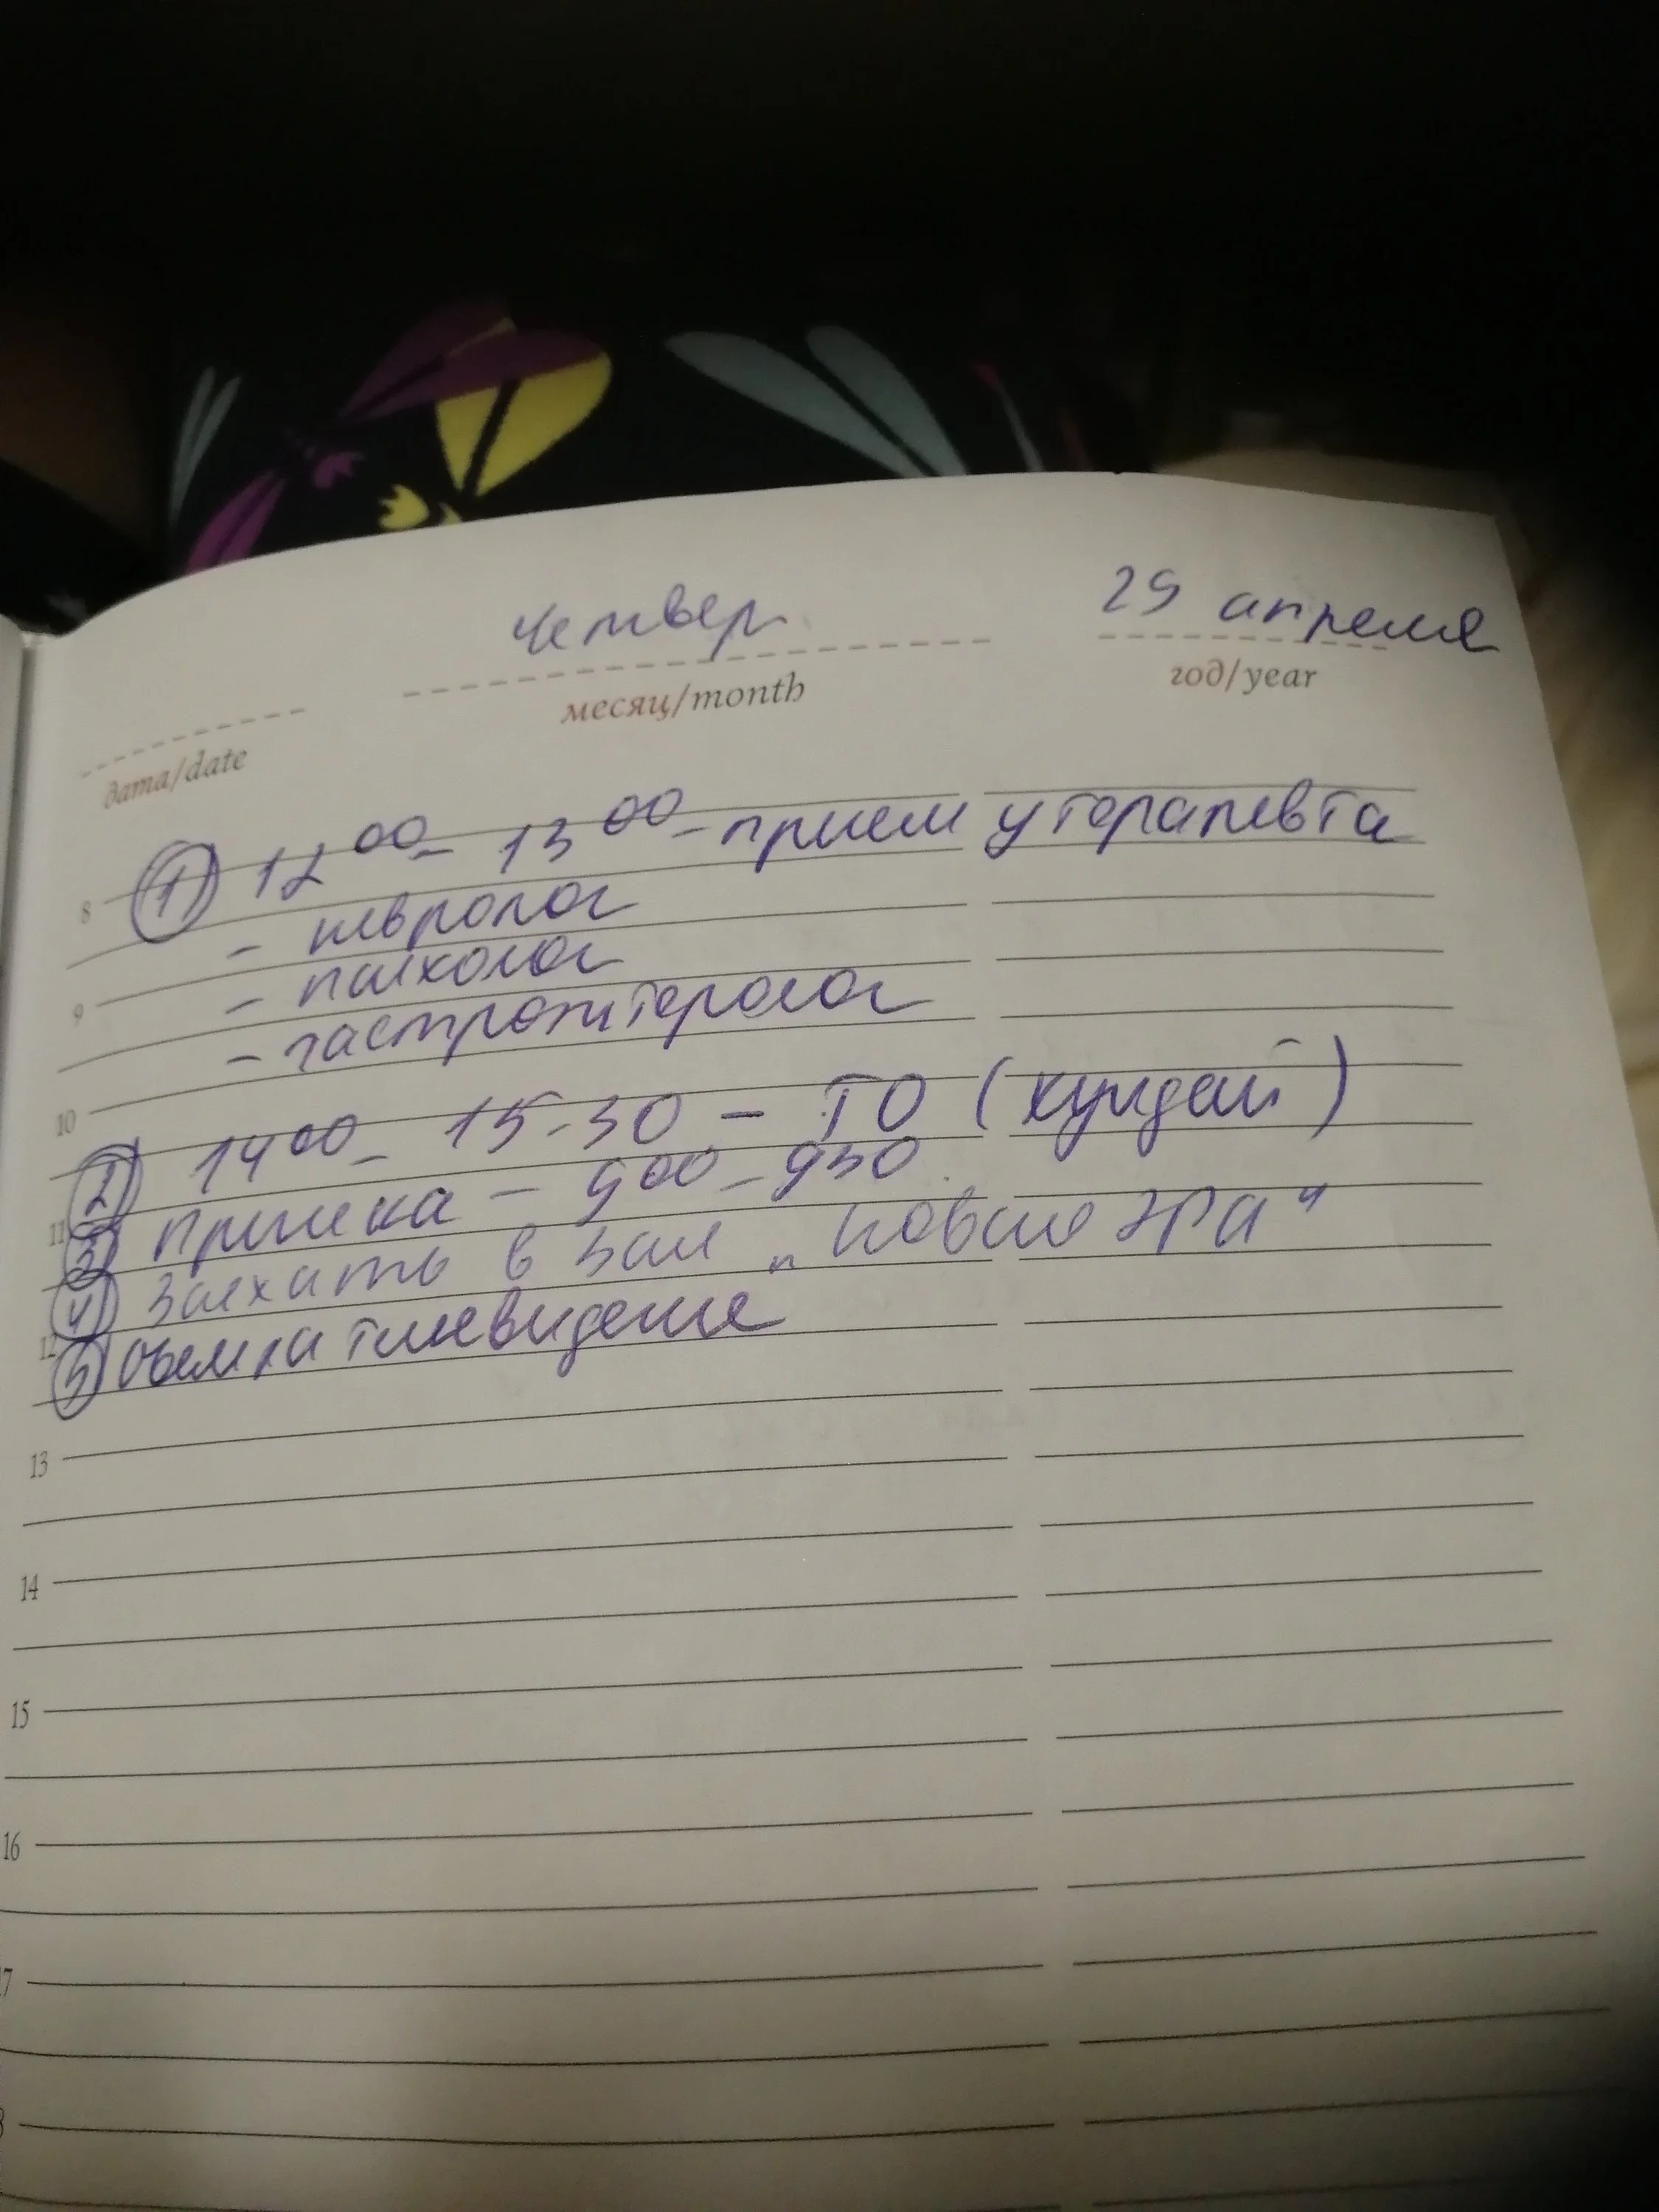 Четверг 29 апреля
дата/date месяц/month год/year
1) 12 00 - 13 00 - прием у терапевта
8
- невролог
- психолог
9
- гастроэнтеролог
10
2) 14 00 - 15-30 - ТО (хундай)
11
3) - 9 00 - 9 30
4) Заехать в зал „Новая ЭРА"
12
5) телевидение
13
14
15
16
17